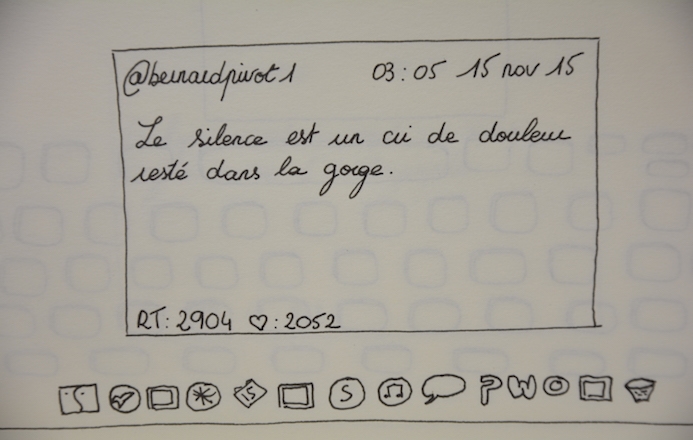 @bernardpivot1 03:05 15 nov 15
Le silence est un cri de douleur
resté dans la gorge.
RT: 2904 ♡: 2052
S S P W